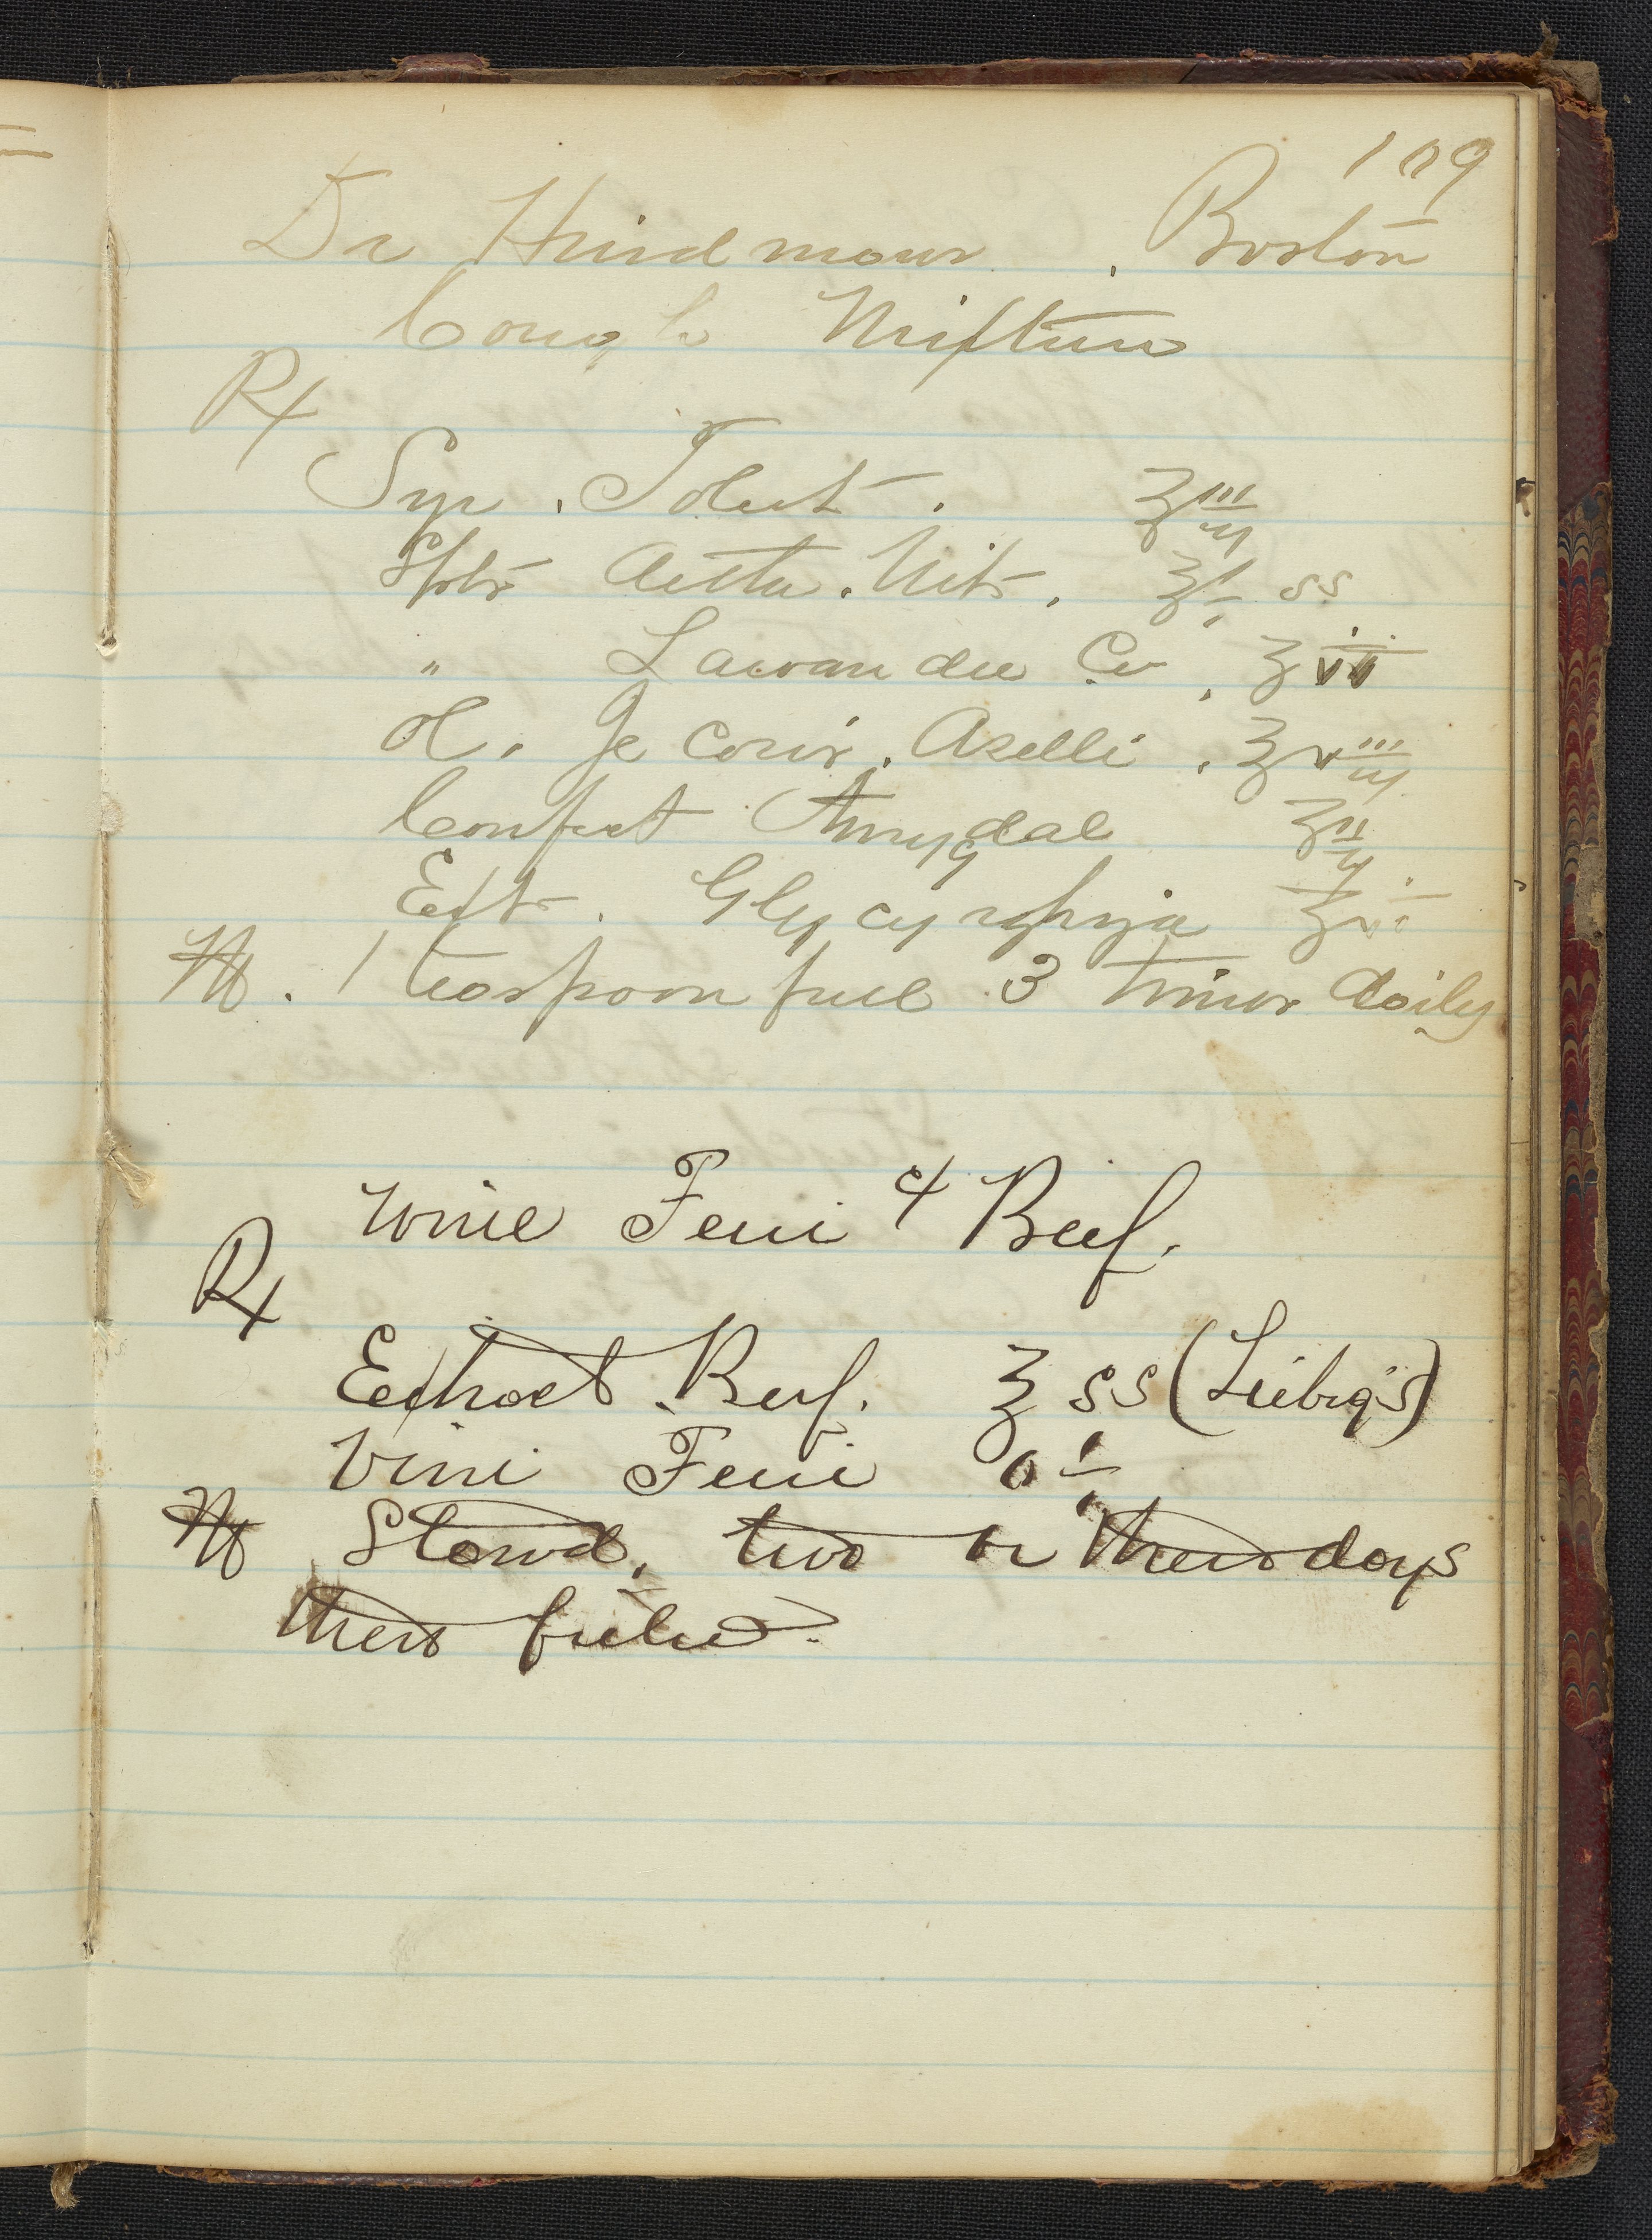 109
Dr Hindmour . Boston
Cough Mixture
Rx
Syr . Tolut . ʒiii
Spts Aeth . Nit . ʒi ss
" Lavandu Co . ʒvii
Ol . Jecoris . Aselli . ʒviii
Confect Amygdal ʒii
Extr . Glycyrrhiza
M . 1 teaspoonful 3 times daily
Wine Ferri & Beef .
Rx
Extract . Beef . ʒ ss (Liebig's)
Vini Ferri Oi
M Stand , two or three days
then filter .